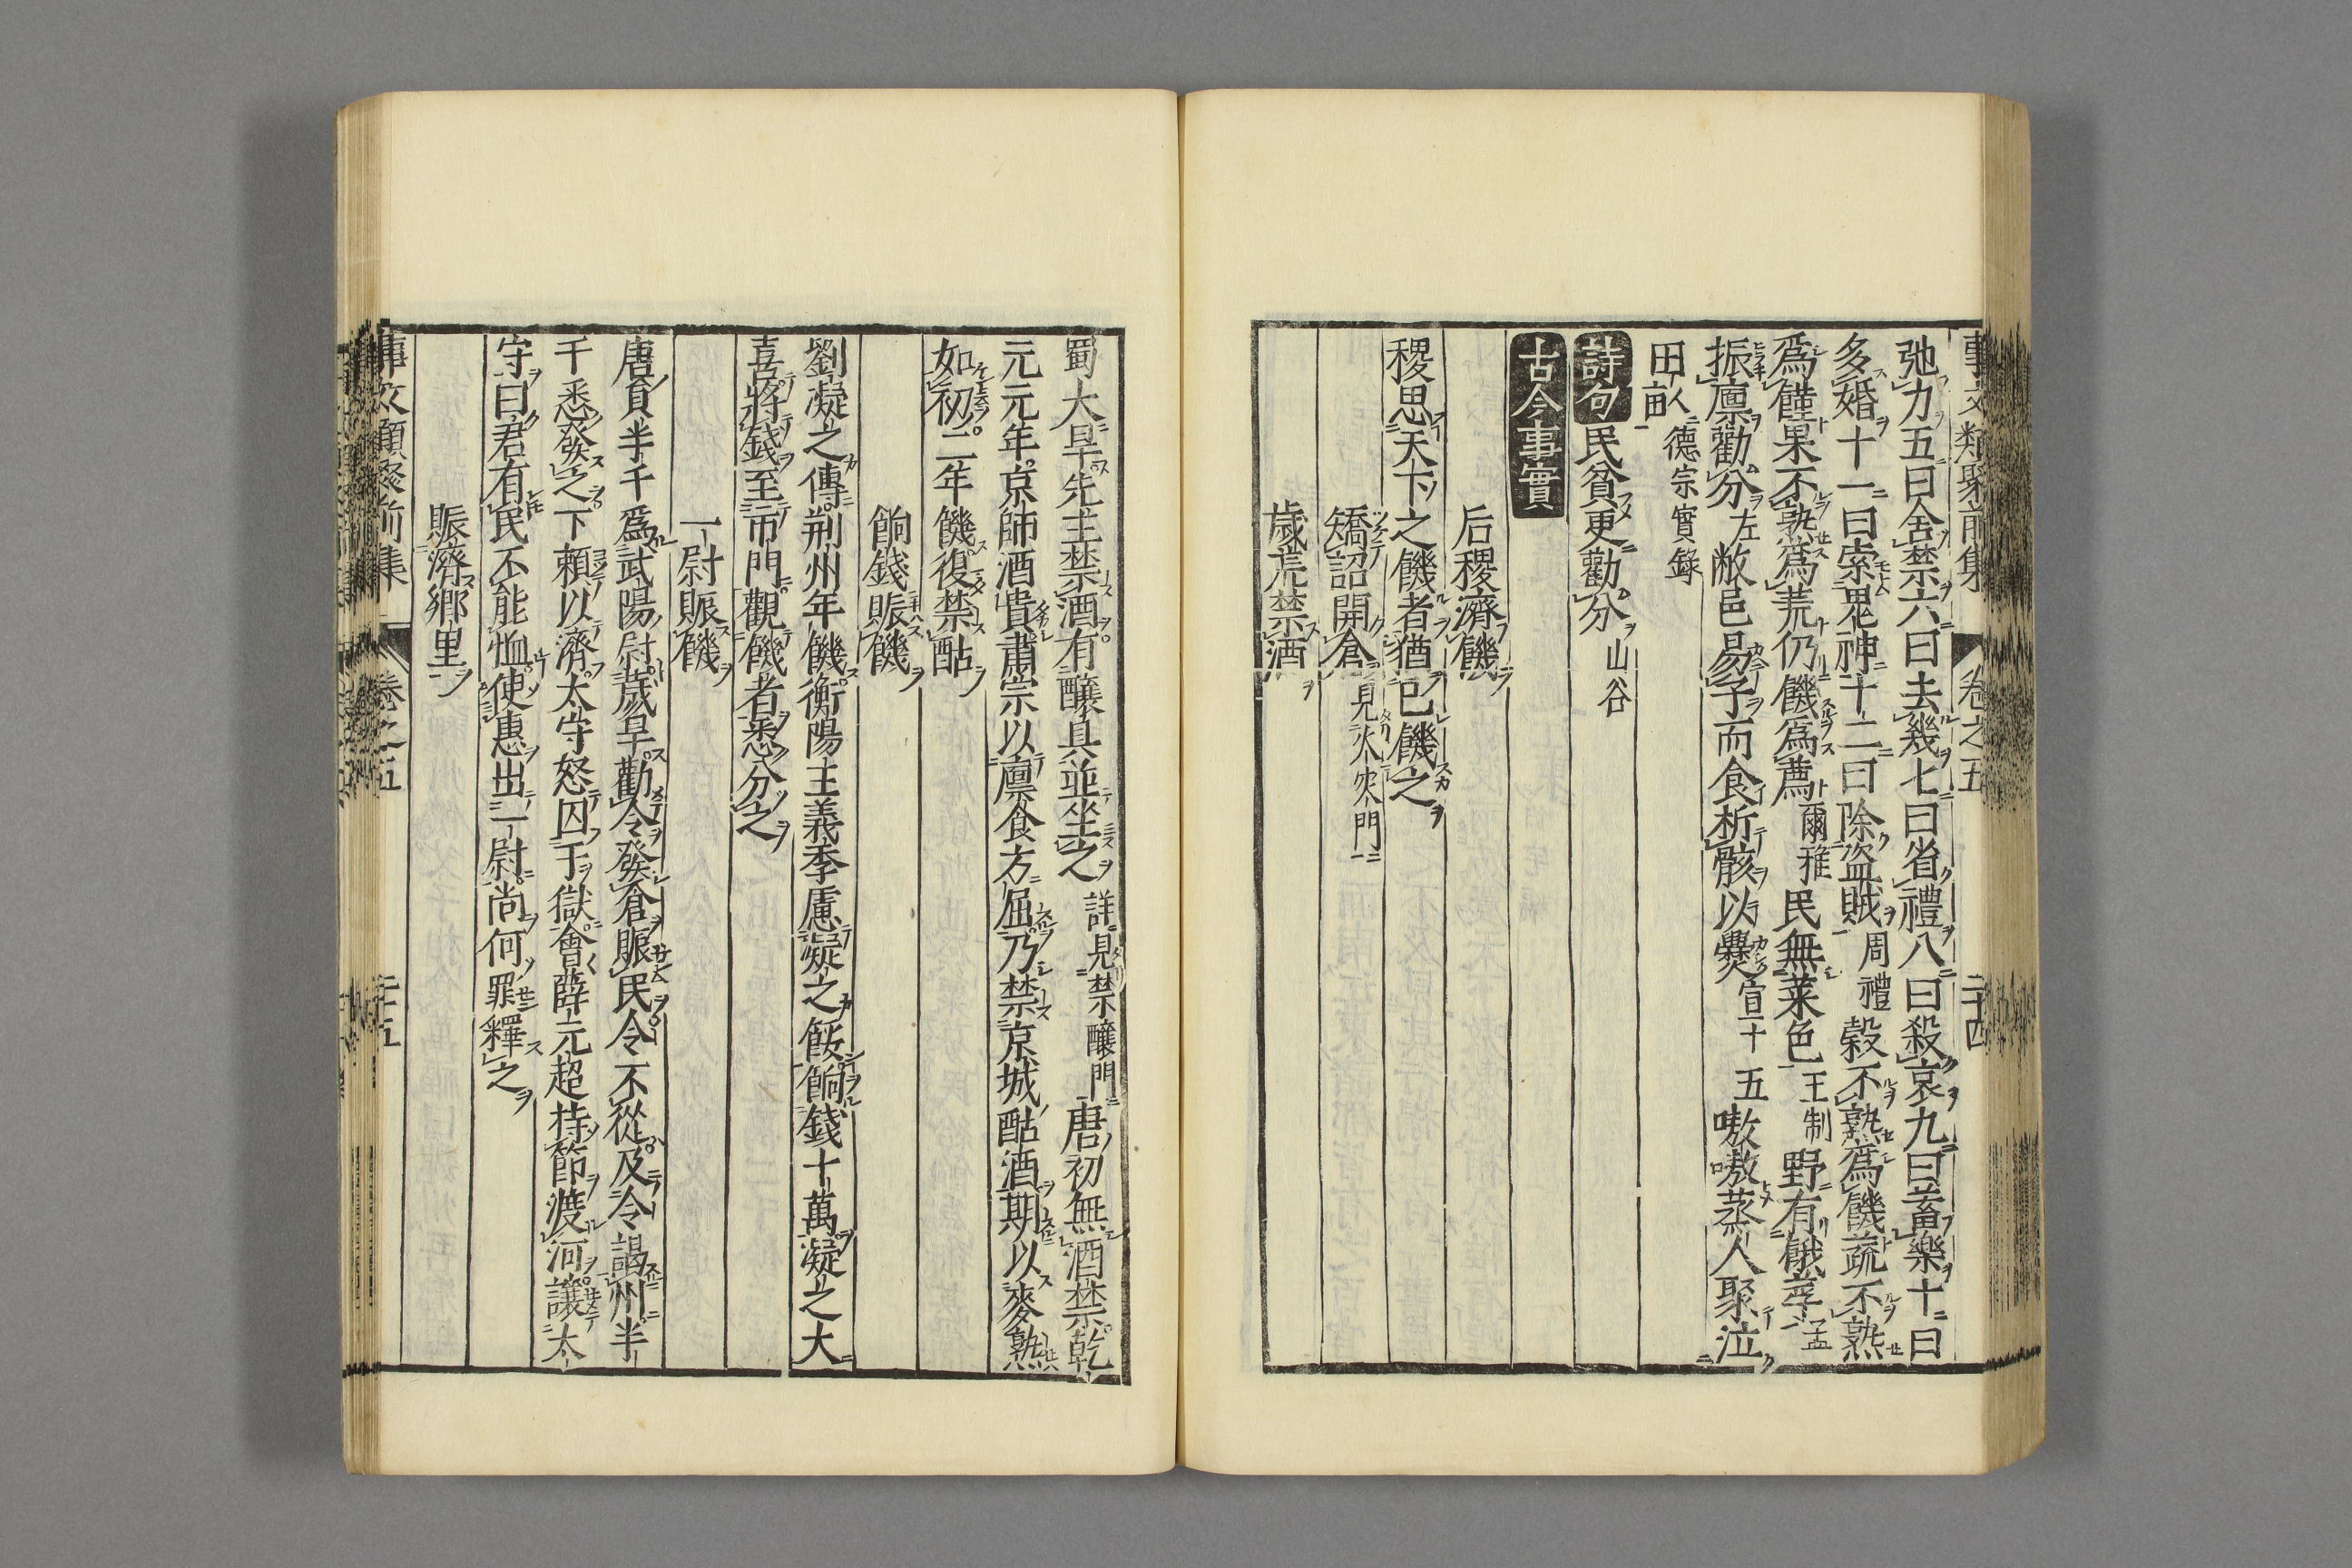 事文類聚前集 卷之五 二十四
弛力五曰舍禁六曰去幾七曰省禮八曰殺哀九曰蓄樂十曰
多婚十一曰索鬼神十二曰除盜賊周禮穀不熟爲饑蔬不熟
爲饉果不熟爲荒仍饑爲薦爾雅民無菜色王制野有餓莩孟
振廩勸分左敝邑易子而食析骸以爨宣十五嗷嗷蒸人聚泣
田畝德宗實錄
詩句民貧更勸分山谷
古今事實
后稷濟饑
稷思天下之饑者猶已饑之
矯詔開倉見火灾門
歲荒禁酒
蜀大旱先主禁酒有釀具並坐之詳見禁釀門唐初無酒禁乾
元元年京師酒貴肅宗以廩食方屈乃禁京城酤酒期以麥熟
如初二年饑復禁酤
餉錢賑饑
劉凝之傳荆州年饑衡陽王義季慮凝之餒餉錢十萬凝之大
喜將錢至市門觀饑者悉分之
一尉賑饑
唐員半千爲武陽尉歲旱勸令發倉賑民令不從及令謁州半
千悉發之下頼以濟太守怒囚于獄會薛元超持節渡河讓太
守曰君有民不能恤使惠出一尉尚何罪釋之
賑濟鄉里
事文類聚前集 卷之五 二十五